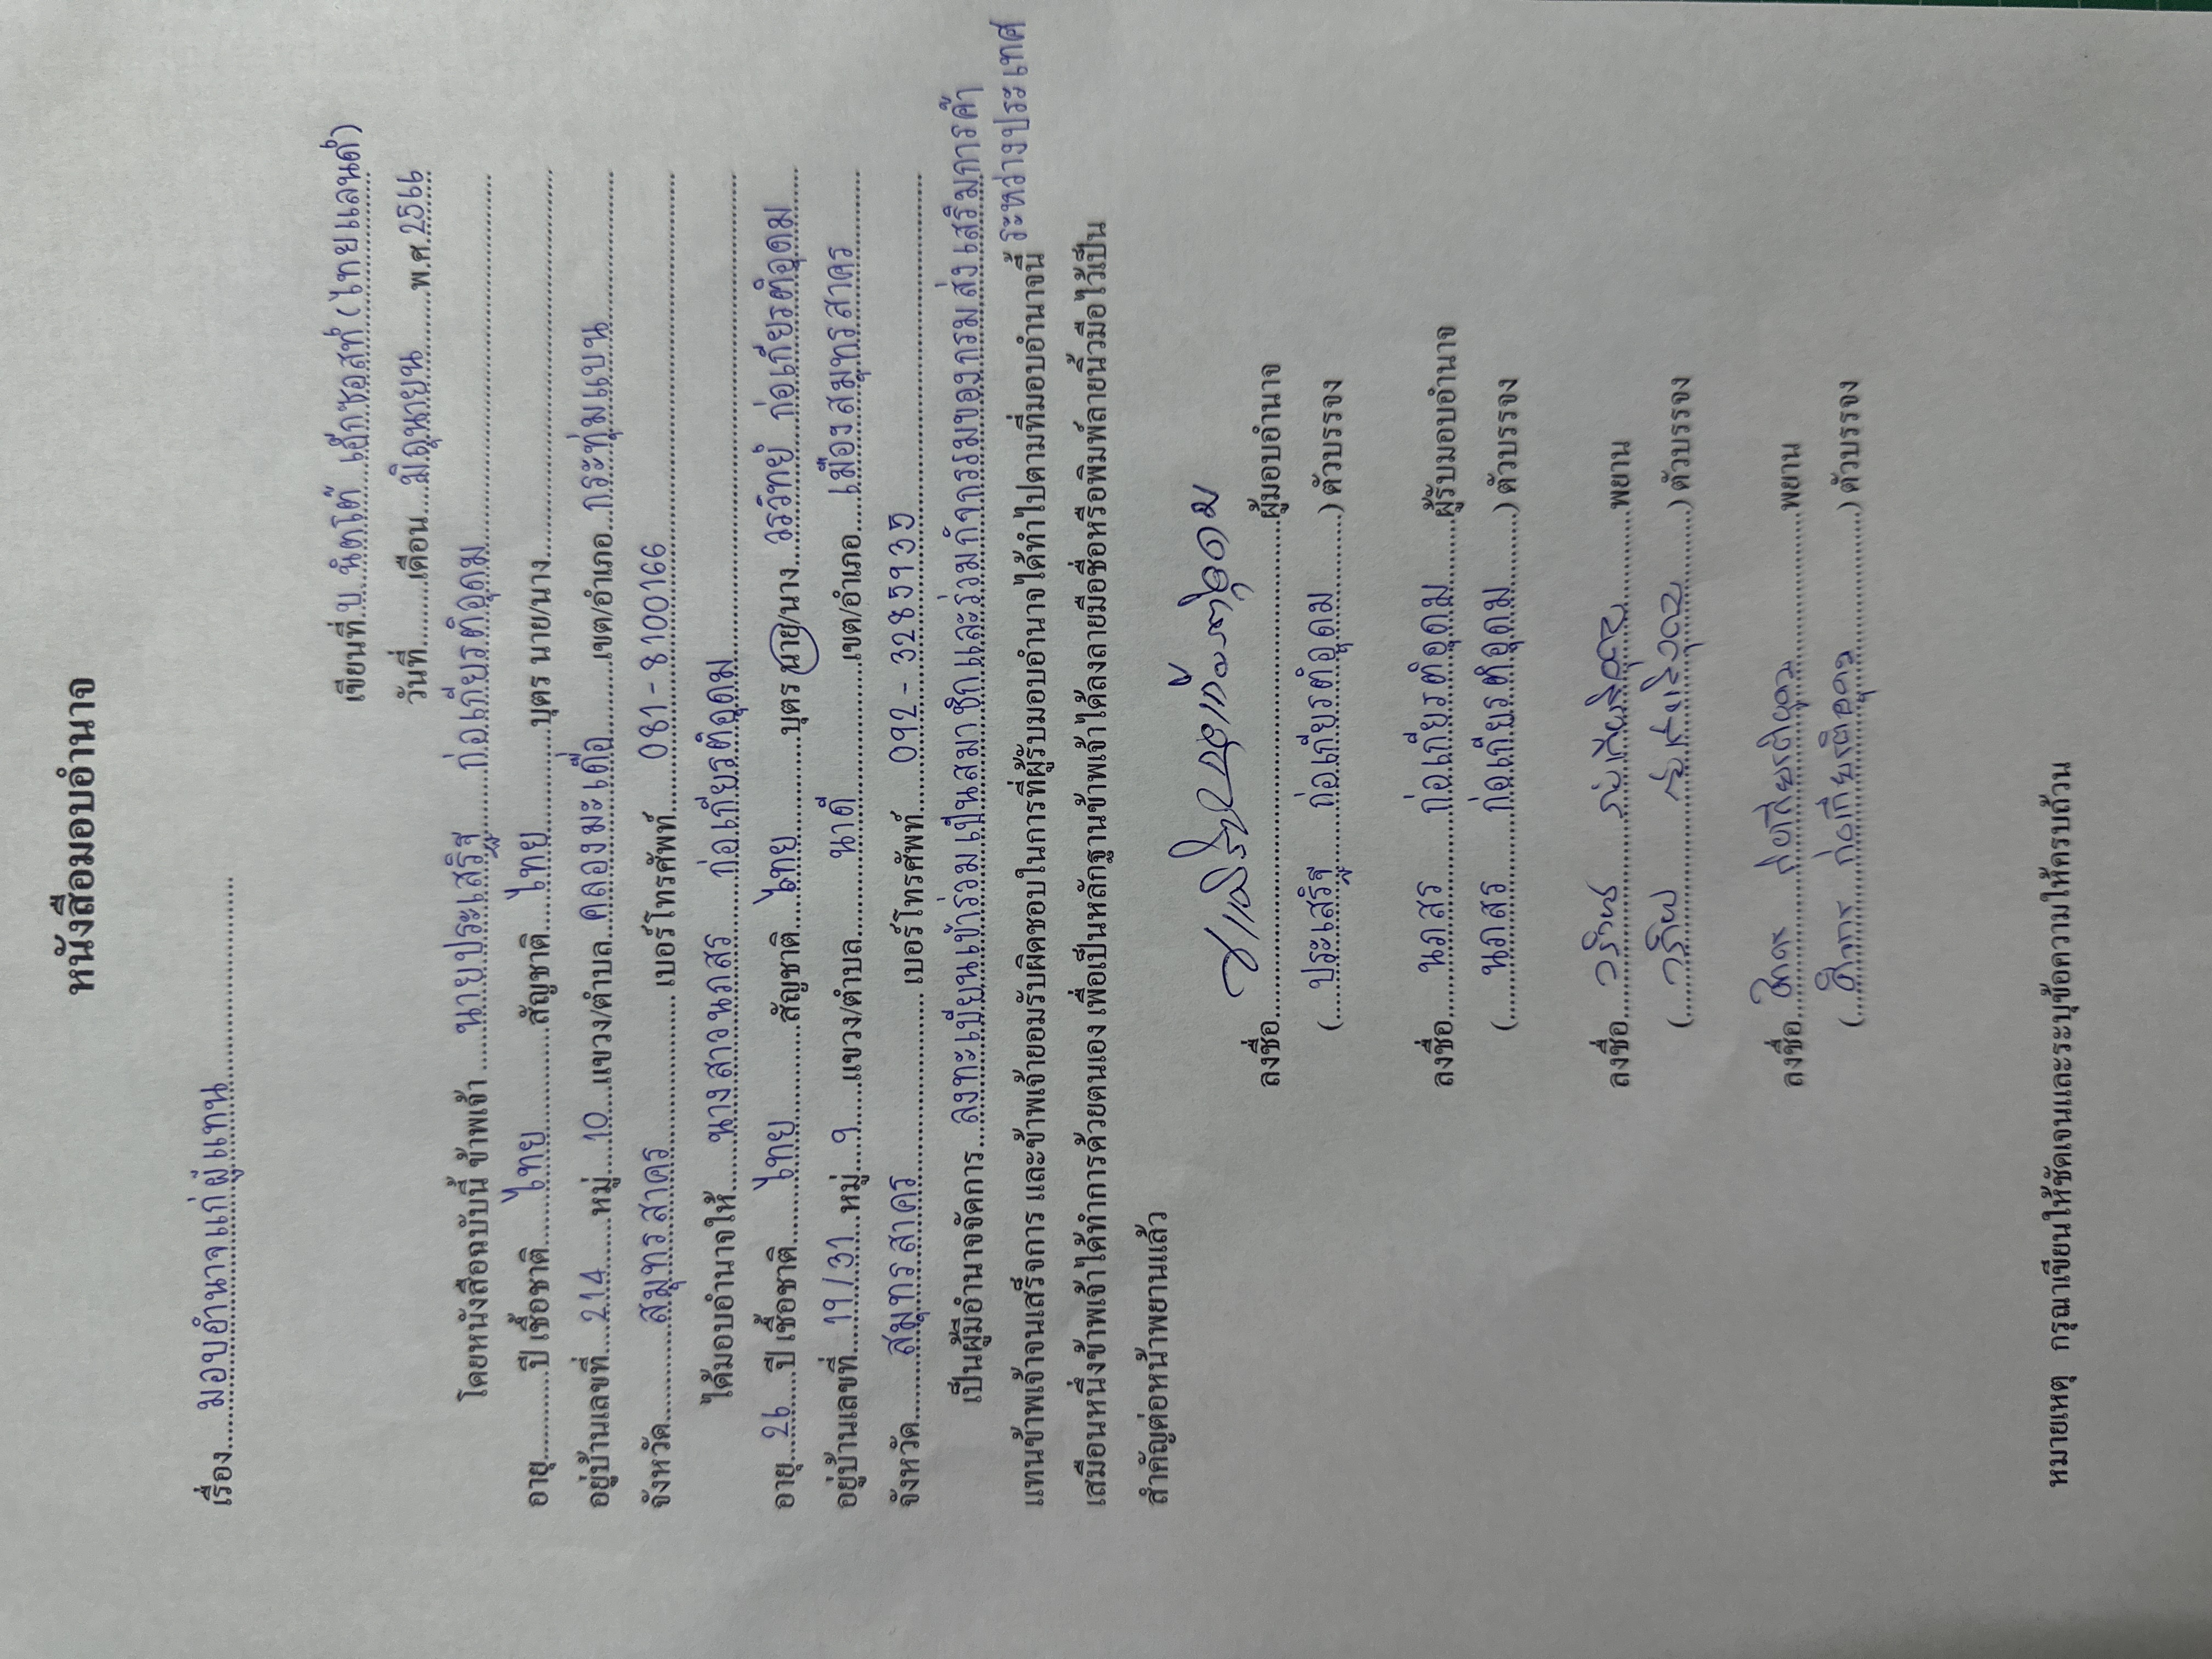 หนังสือมอบอำนาจ
เรื่อง....มอบอำนาจแก่ผู้แทน..............................
เขียนที่ บ. นิตโต้ เอ๊กซอสท์ (ไทยแลนด์)
วันที่.........เดือน....มิถุนายน........พ.ศ. 2566
โดยหนังสือฉบับนี้ ข้าพเจ้า ......นายประเสริฐ ก่อเกียรติอุดม..............................
อายุ............ปี เชื้อชาติ.......ไทย..............สัญชาติ.....ไทย..............บุตร นาย/นาง..............................
อยู่บ้านเลขที่....214.......หมู่....10....แขวง/ตำบล..คลองมะเดื่อ..........เขต/อำเภอ...กระทุ่มแบน....................
จังหวัด.............สมุทรสาคร.................... เบอร์โทรศัพท์.......081-8100166..............................
ได้มอบอำนาจให้.......นางสาวนภสร ก่อเกียรติอุดม..............................
อายุ...26....ปี เชื้อชาติ.........ไทย.............สัญชาติ....ไทย..............บุตร นาย/นาง...วรวิทย์ ก่อเกียรติอุดม.....
อยู่บ้านเลขที่....19/31...หมู่....9.....แขวง/ตำบล...........นาดี..................เขต/อำเภอ.....เมืองสมุทรสาคร..........
จังหวัด.........สมุทรสาคร........................ เบอร์โทรศัพท์.......092-3285935..............................
เป็นผู้มีอำนาจจัดการ...ลงทะเบียนเข้าร่วมเป็นสมาชิกและร่วมกิจกรรมของกรมส่งเสริมการค้า
ระหว่างประเทศ
แทนข้าพเจ้าจนเสร็จการ และข้าพเจ้ายอมรับผิดชอบในการที่ผู้รับมอบอำนาจได้ทำไปตามที่มอบอำนาจนี้
เสมือนหนึ่งข้าพเจ้าได้ทำการด้วยตนเอง เพื่อเป็นหลักฐานข้าพเจ้าได้ลงลายมือชื่อหรือพิมพ์ลายนิ้วมือไว้เป็น
สำคัญต่อหน้าพยานแล้ว
ลงชื่อ..................................................ผู้มอบอำนาจ
(.....ประเสริฐ ก่อเกียรติอุดม..........) ตัวบรรจง
ลงชื่อ......นภสร ก่อเกียรติอุดม........ผู้รับมอบอำนาจ
(......นภสร ก่อเกียรติอุดม..........) ตัวบรรจง
ลงชื่อ.....ก่อเกียรติอุดม..........พยาน
(.....ก่อเกียรติอุดม........) ตัวบรรจง
ลงชื่อ.....ก่อเกียรติอุดม................พยาน
(.....ก่อเกียรติอุดม..............) ตัวบรรจง
หมายเหตุ กรุณาเขียนให้ชัดเจนและระบุข้อความให้ครบถ้วน